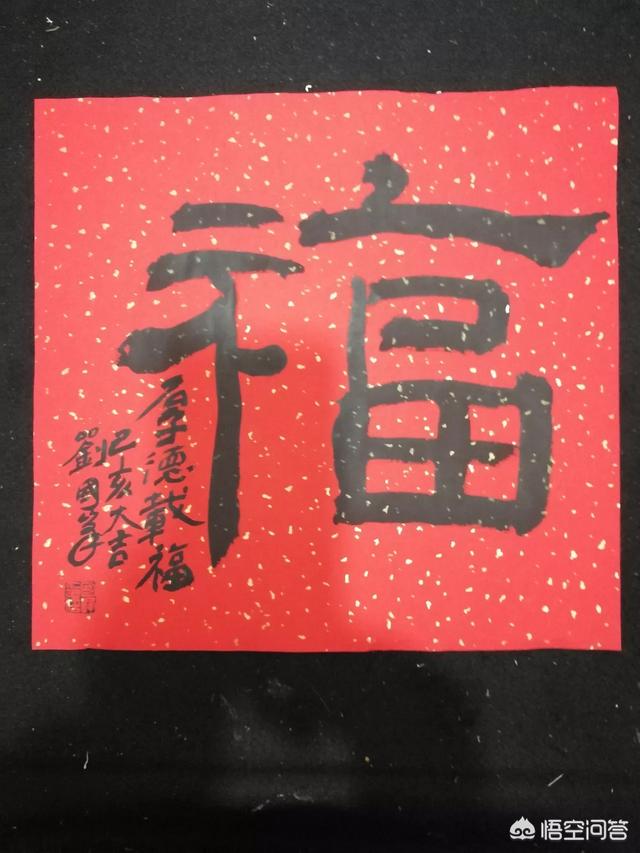 福
厚德载福
己亥大吉
劉國峯
悟空问答